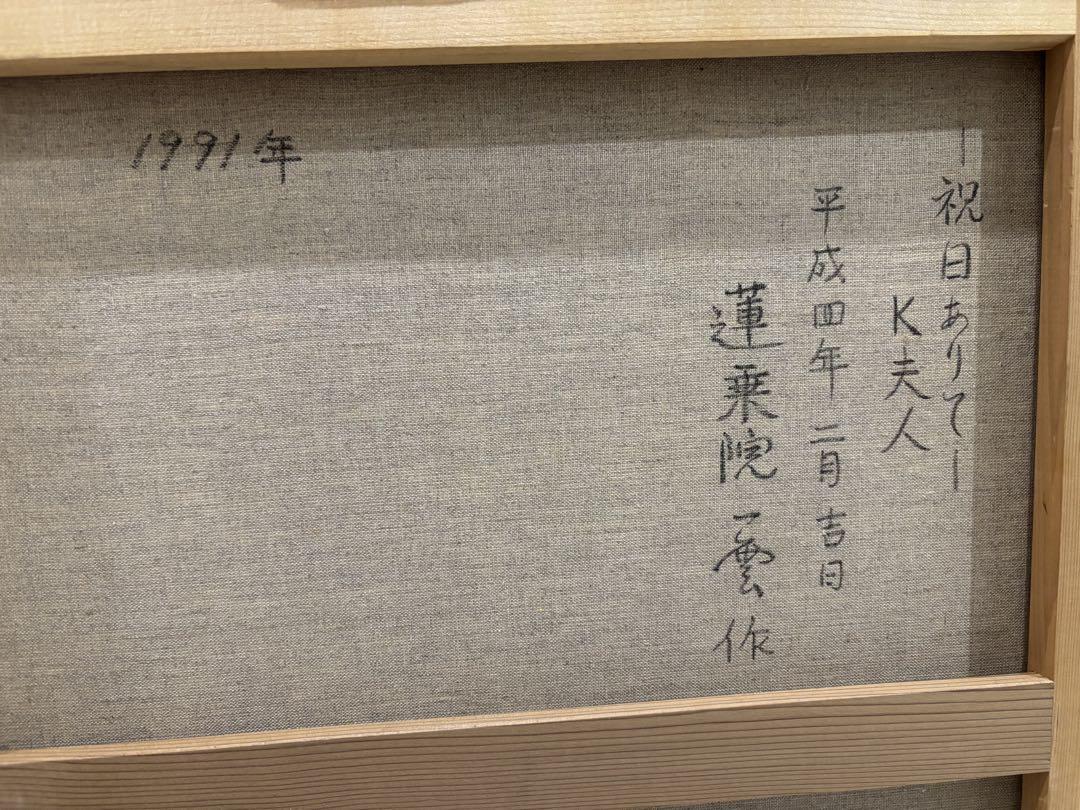 —祝日ありて—
K夫人
平成四年二月吉日
蓮乗院一雲作
1991年